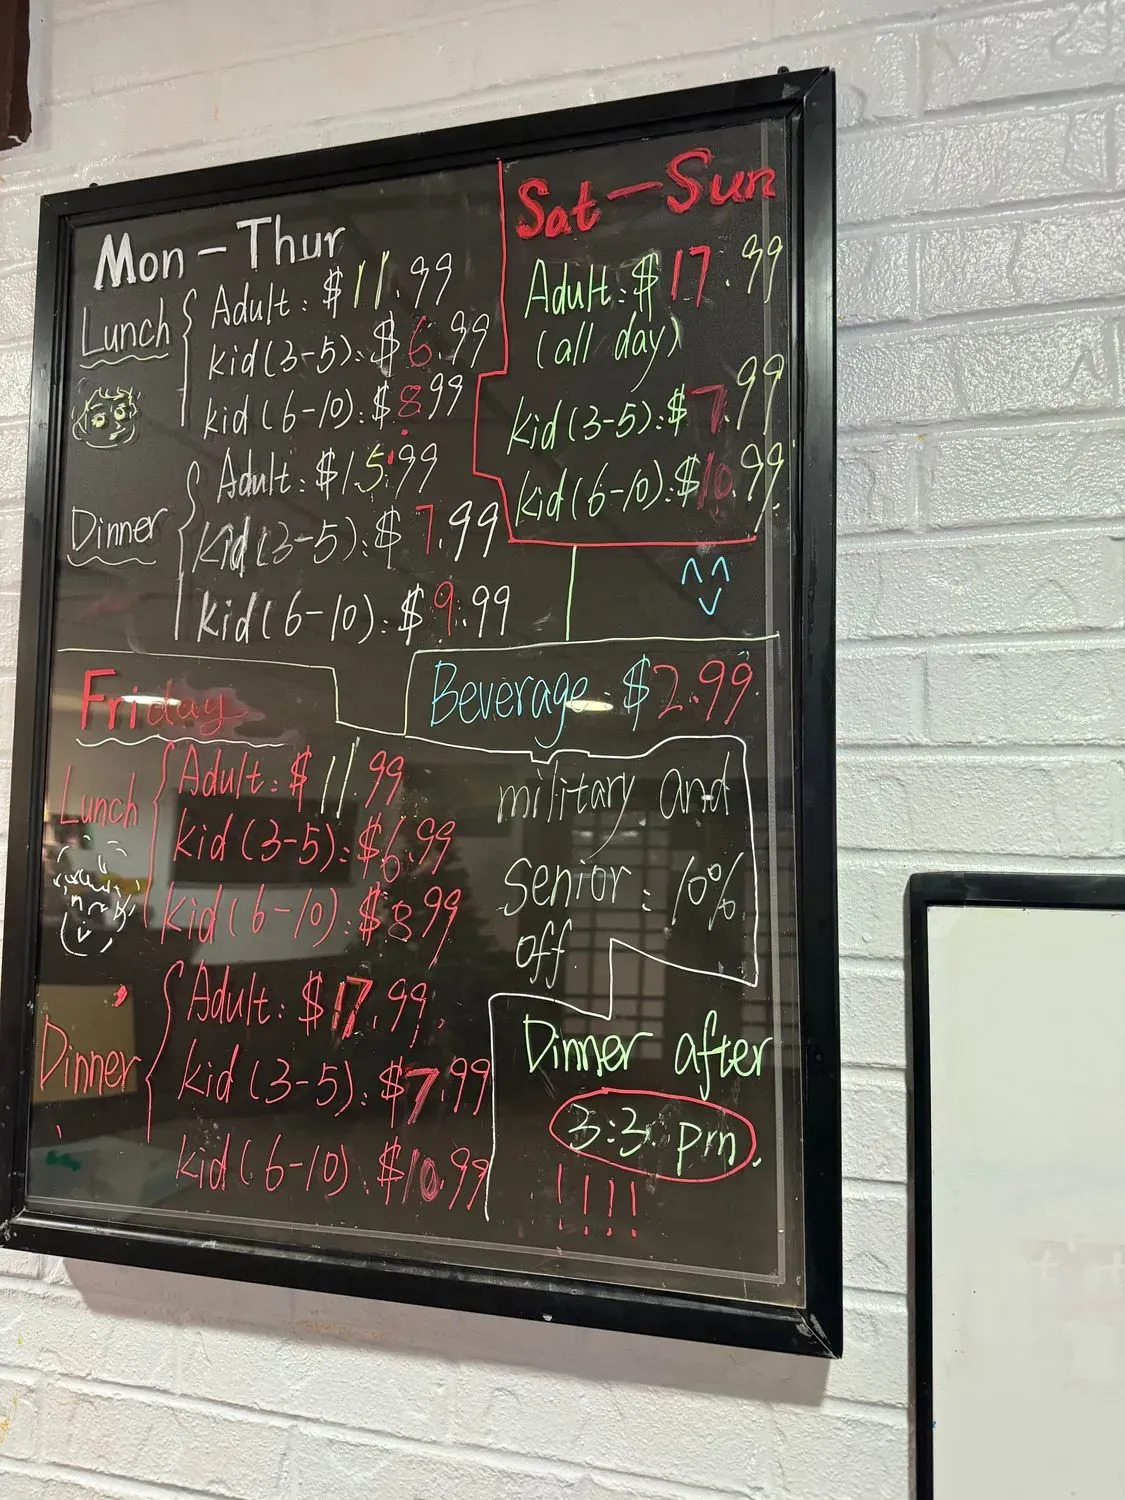 Mon-Thur
Lunch
Adult: $11.99
kid(3-5): $6.99
kid(6-10): $8.99
Dinner
Adult: $15.99
kid(3-5): $7.99
kid(6-10): $9.99
Sat-Sun
Adult: $17.99
(all day)
kid(3-5): $7.99
kid(6-10): $10.99
Friday
Lunch
Adult: $11.99
kid(3-5): $6.99
kid(6-10): $8.99
Dinner
Adult: $17.99
kid(3-5): $7.99
kid(6-10) $10.99
Beverage $2.99
military and
Senior: 10%
off
Dinner after
3:3 pm.
!!!!